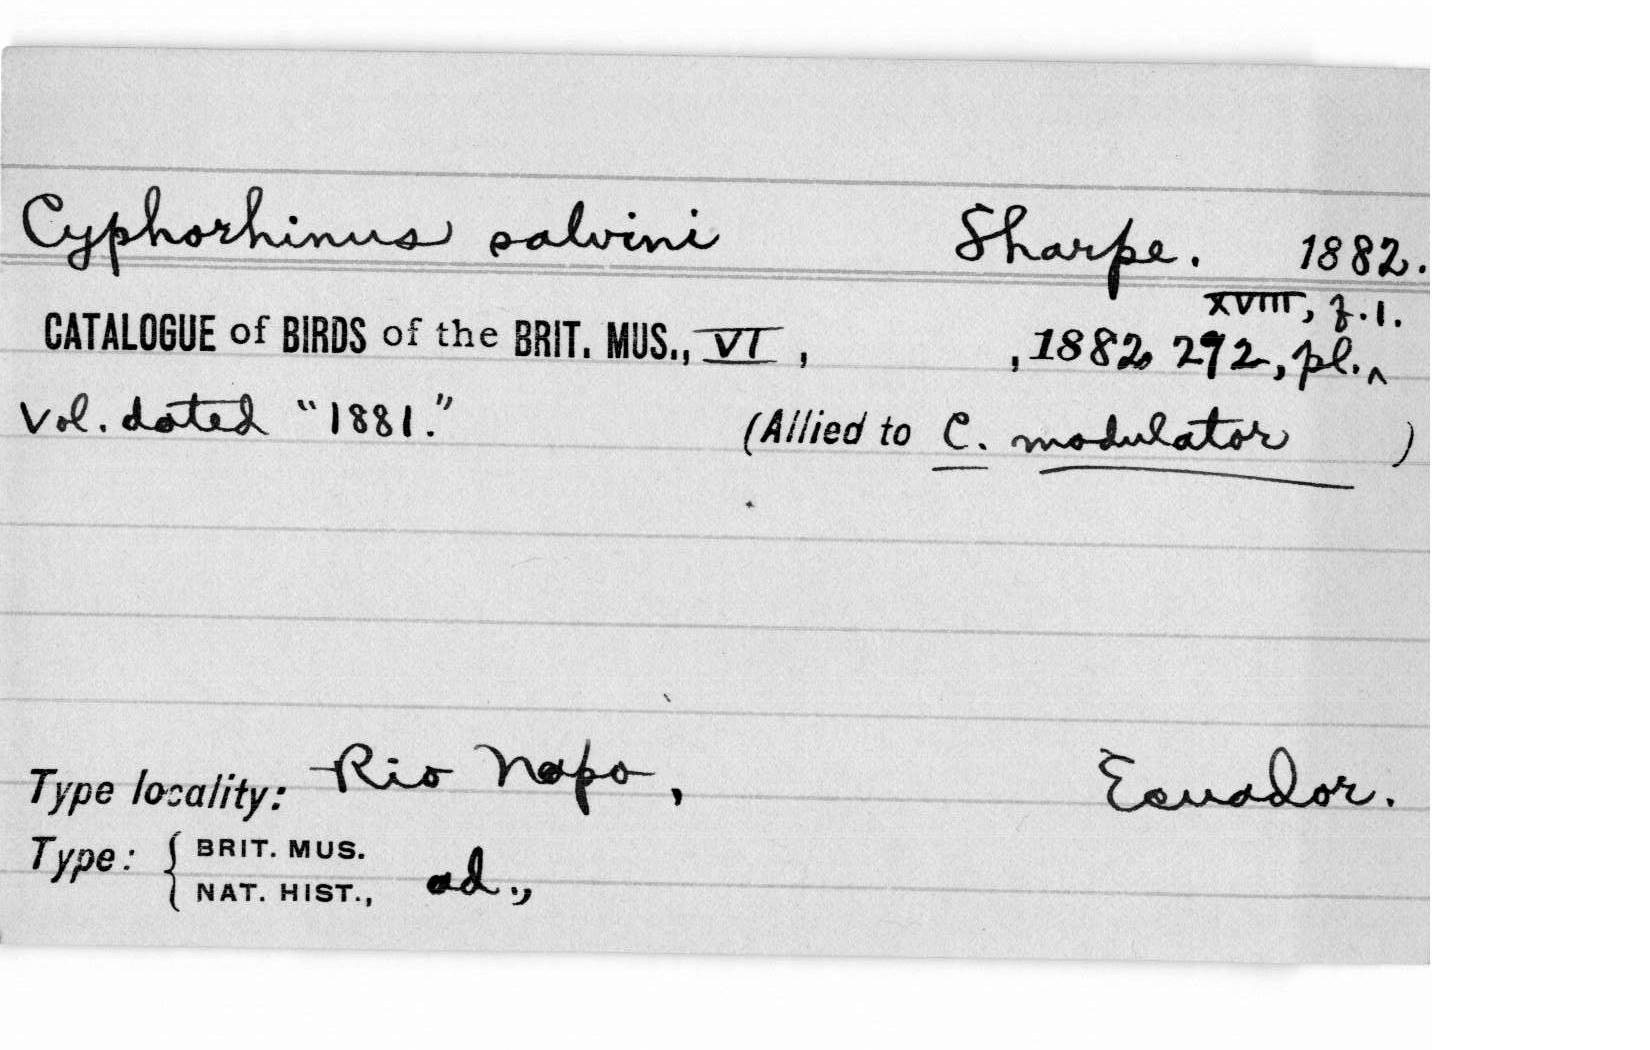 Cyphorhinus salvini Sharpe. 1882.
XVIII, f.1.
CATALOGUE of BIRDS of the BRIT. MUS., VI, , 1882, 292, pl.^
Vol. dated "1881." (Allied to C. modulator )
Type locality: Rio Napo, Ecuador.
Type: { BRIT. MUS.
NAT. HIST., ad.,